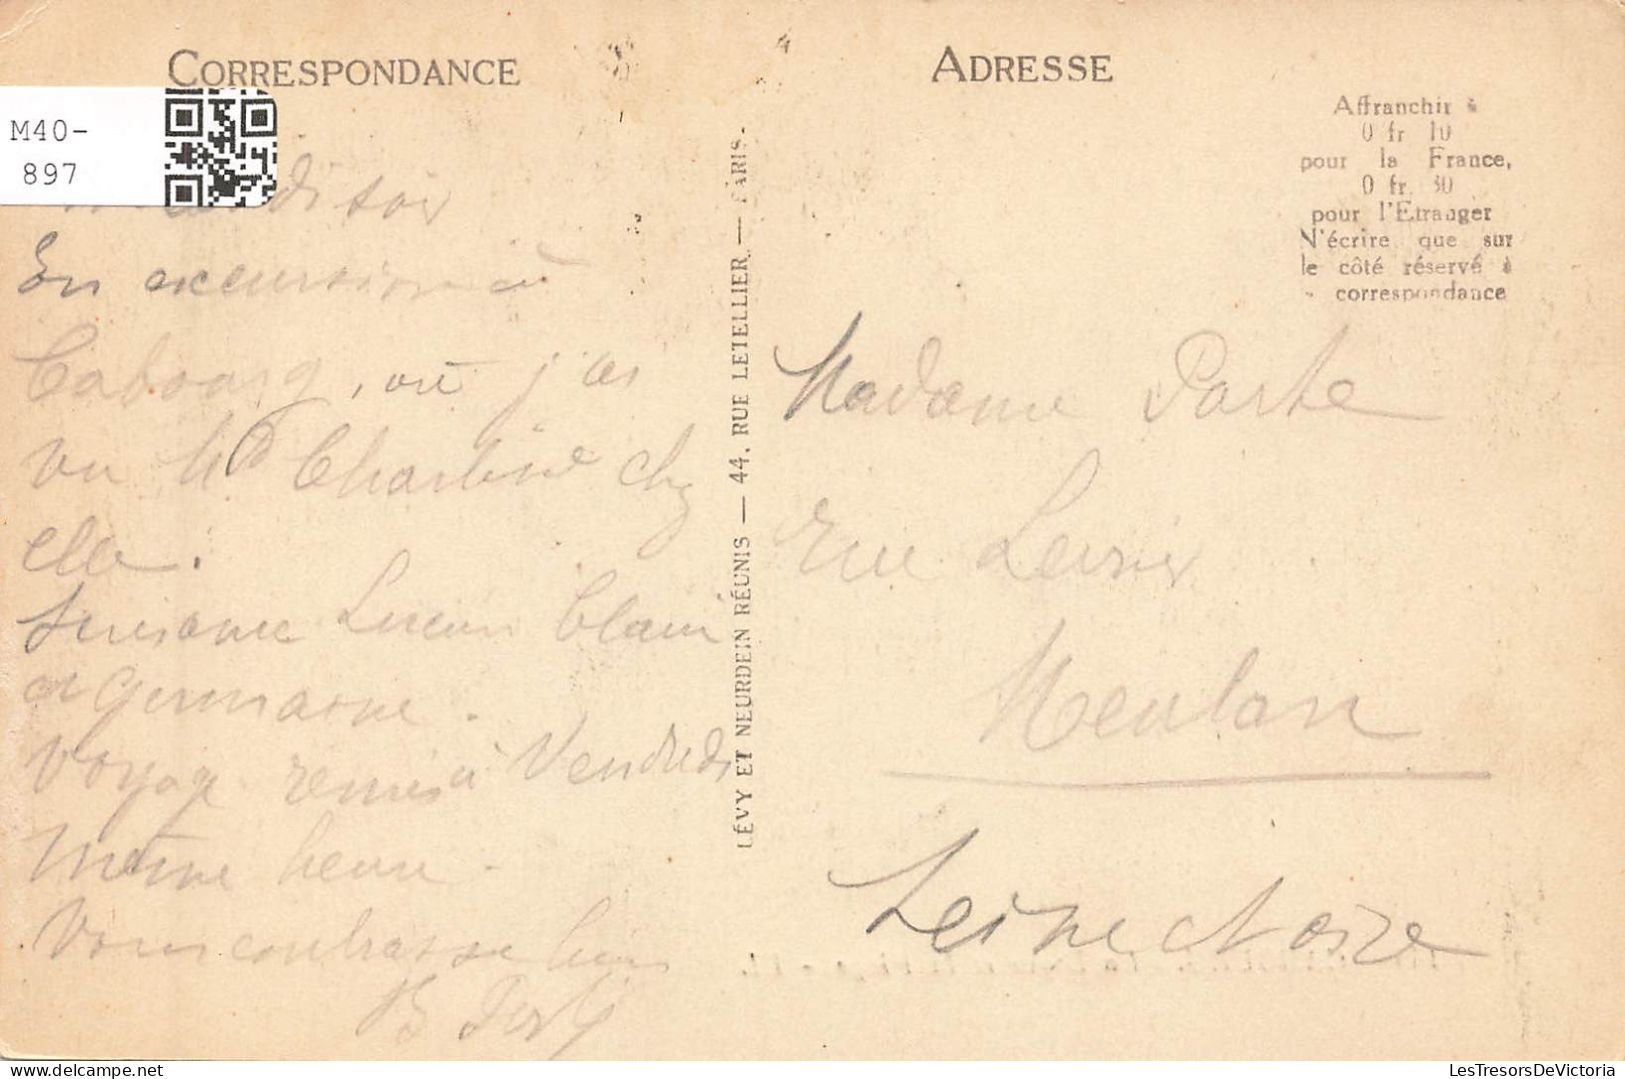 CORRESPONDANCE
M40-
897
di soir
En excursion à
Cabourg, où j'ai
vu
elle.
Suzanne Lucien
et Germaine.
Voyage remis à Vendredi
même heure -
Vous embrasse bien
B
LÉVY ET NEURDEIN RÉUNIS — 44, RUE LETELLIER — PARIS.
ADRESSE
Affranchir à
0 fr 10
pour la France,
0 fr. 30
pour l'Etranger
N'écrire que sur
le côté réservé à
correspondance
Madame
Rue
Meulan
Seine et Oise
LesTresorsDeVictoria